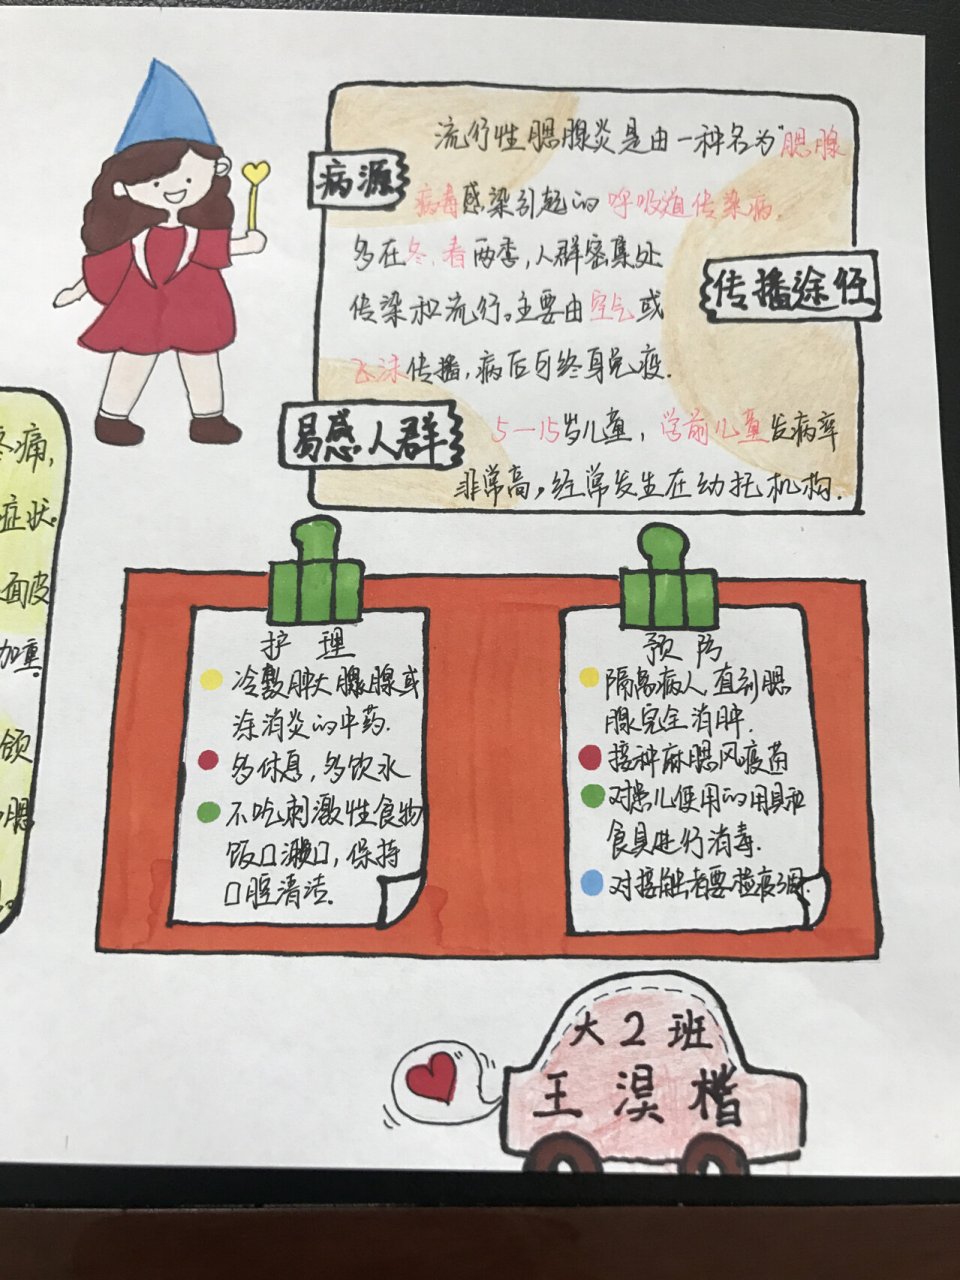 流行性腮腺炎是由一种名为"腮腺
病源
病毒感染引起的呼吸道传染病.
多在冬.春两季,人群密集处
传播途径
传染和流行。主要由空气或
飞沫传播,病后可终身免疫.
易感人群
5—15岁儿童,学前儿童发病率
非常高,经常发生在幼托机构.
疼痛,
症状.
面皮
加重.
颌
腮
护理
冷敷肿大腺腺或
涂消炎的中药.
多休息,多饮水
不吃刺激性食物
饭口漱口,保持
口腔清洁.
预防
隔离病人直到腮
腺完全消肿.
接种麻腮风疫苗
对患儿使用的用具和
食具进行消毒.
对接触者要检疫3周.
大2班
王淏楷